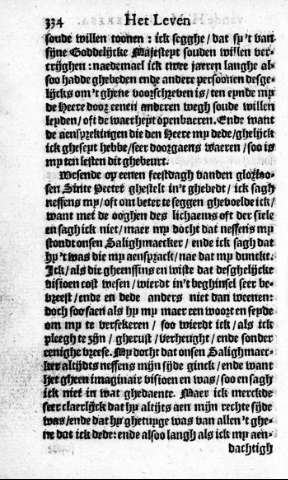 334 Het Leven
soude willen toonen: ick segghe / dat sp't van
sijne Goddelijcke Majesteyt souden willen ver-
crijghen: naedemael ick twee jaeren langhe al-
soo hadde ghebeden ende andere persoonen desge-
lijcks om 't ghene voorschreven is / ten eynde my
de Heere door eenen anderen wegh soude willen
leyden / oft de waerheyt openbaeren. Ende want
de aensprekingen die den Heere my dede / ghelijck
ick gheseyt hebbe / seer doorgaens waeren / soo is
my ten lesten dit ghebeurt.
Wesende op eenen feestdagh vanden glorioo-
sen Sinte Peeter ghestelt in 't ghebedt / ick sagh
neffens my / oft om beter te seggen ghevoelde ick /
want met de ooghen des lichaems oft der siele
en sagh ick niet / maer my docht dat neffens my
stondt onsen Salighmaecker / ende ick sagh dat
hy 't was die my aensprack / nae dat my dunckt.
Ick / als die gheensins en wiste dat desghelijcke
visioen cost wesen / wierdt in 't beghinsel seer be-
vreest / ende en dede anders niet dan weenen:
doch soo saen als hy my maer een woort en seyde
om my te versekeren / soo wierdt ick / als ick
pleegh te zijn / gherust / verheught / ende sonder
eenighe vreese. My docht dat onsen Salighmaec-
ker altijdts neffens mijn sijde ginck / ende want
het gheen imaginair visioen en was / soo en sagh
ick niet in wat ghedaente. Maer ick merckde
seer claerlijck dat hy altijts aen mijn rechte sijde
was / ende dat hy ghetuyge was van allen 't ghe-
ne dat ick dede: ende alsoo langh als ick my aen-
dachtigh